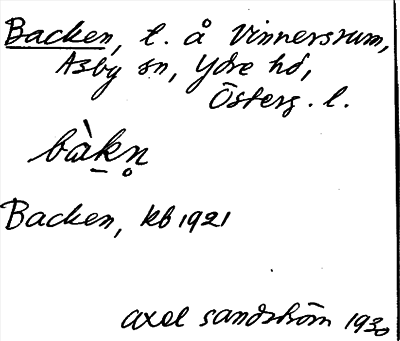 Backen, t. å Vinnersrum,
Asby sn, Ydre hd,
Österg. l.
bàk̠n̥
Backen, kb 1921
Axel Sandström 1930